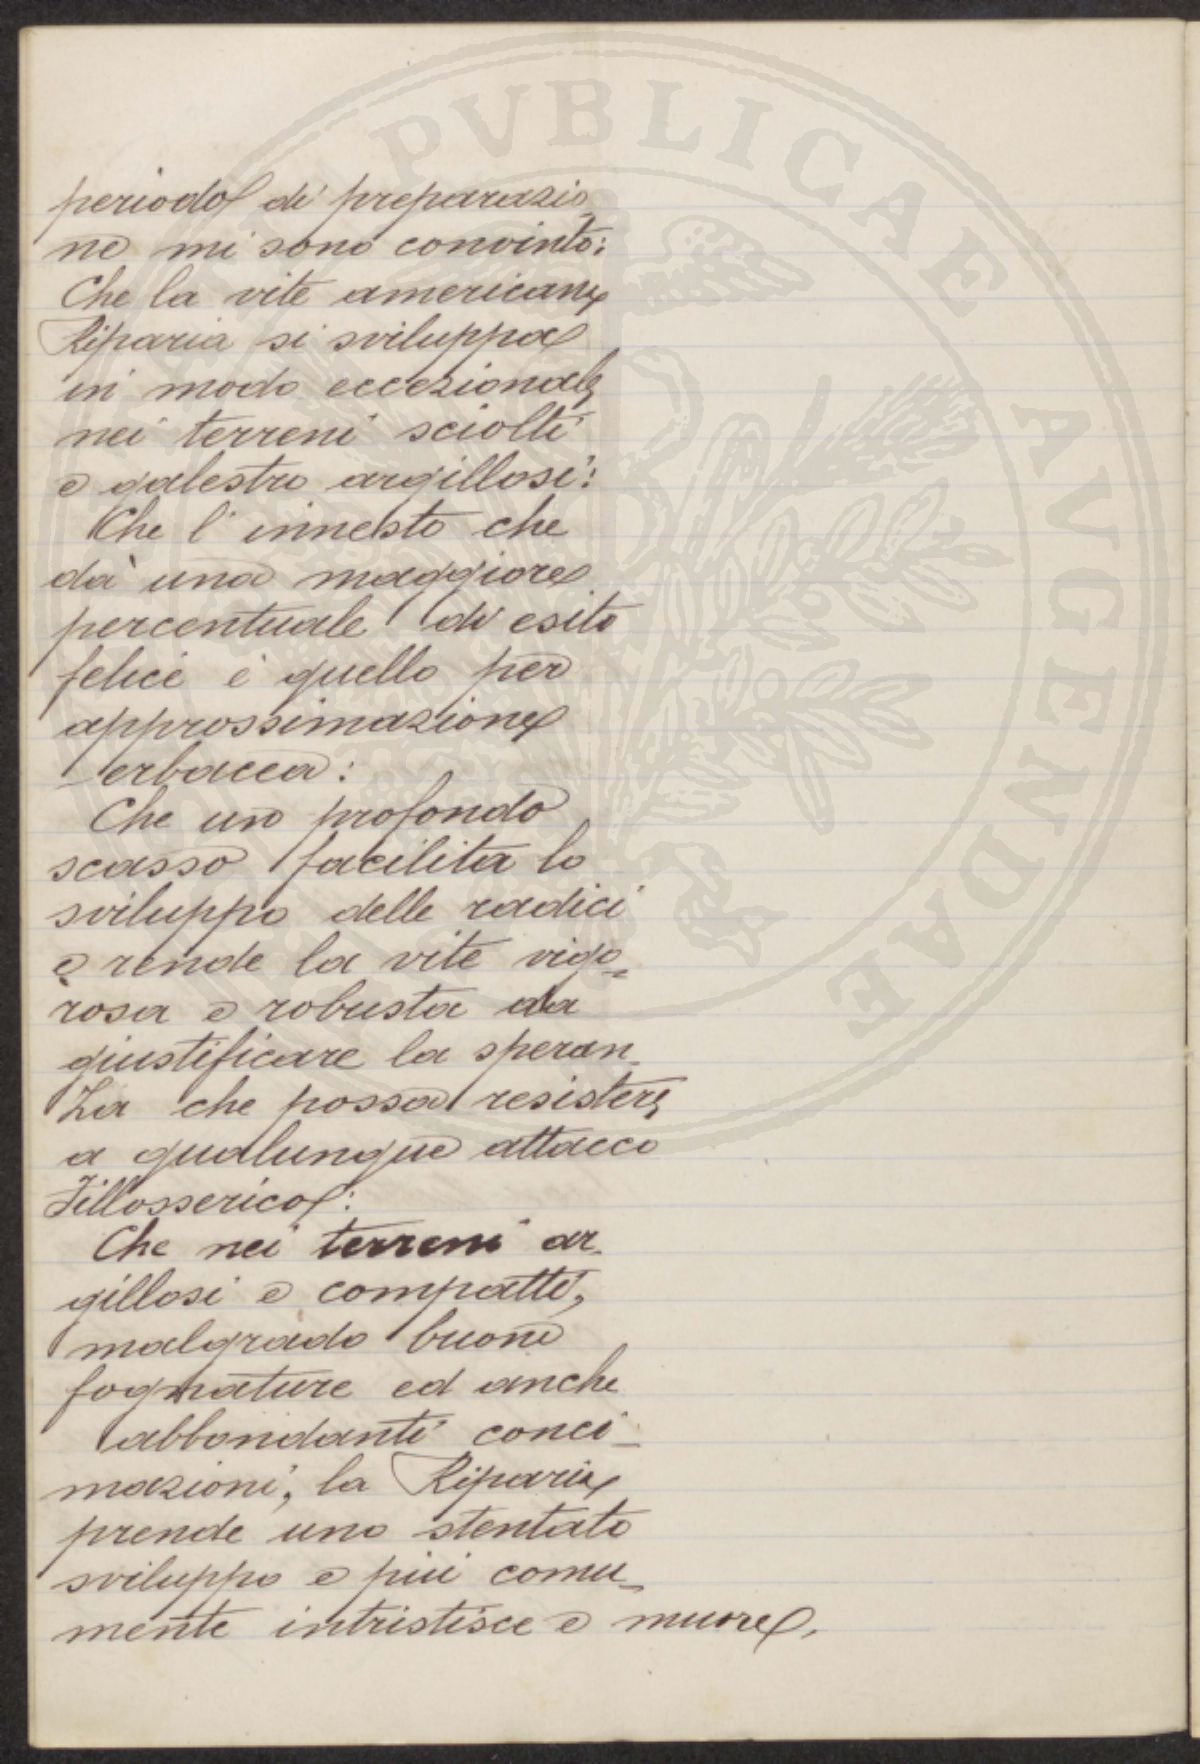 periodo di preparazio_
ne mi sono convinto:
Che la vite americana
Riparia si sviluppa
in modo eccezionale
nei terreni sciolti
e galestro argillosi:
Che l'innesto che
dà una maggiore
percentuale di esito
felice è quello per
approssimazione
erbacea:
Che uno profondo
scasso facilita lo
sviluppo delle radici
e rende la vite vigo=
rosa e robusta da
giustificare la speran_
za che possa resistere
a qualunque attacco
Fillosserico:
Che nei terreni ar_
gillosi e compatti,
malgrado buone
fognature ed anche
abbondanti conci_
mazioni, la Riparia
prende uno stentato
sviluppo e più comu_
mente intristisce e muore.
PVBLICAE AVGENDAE